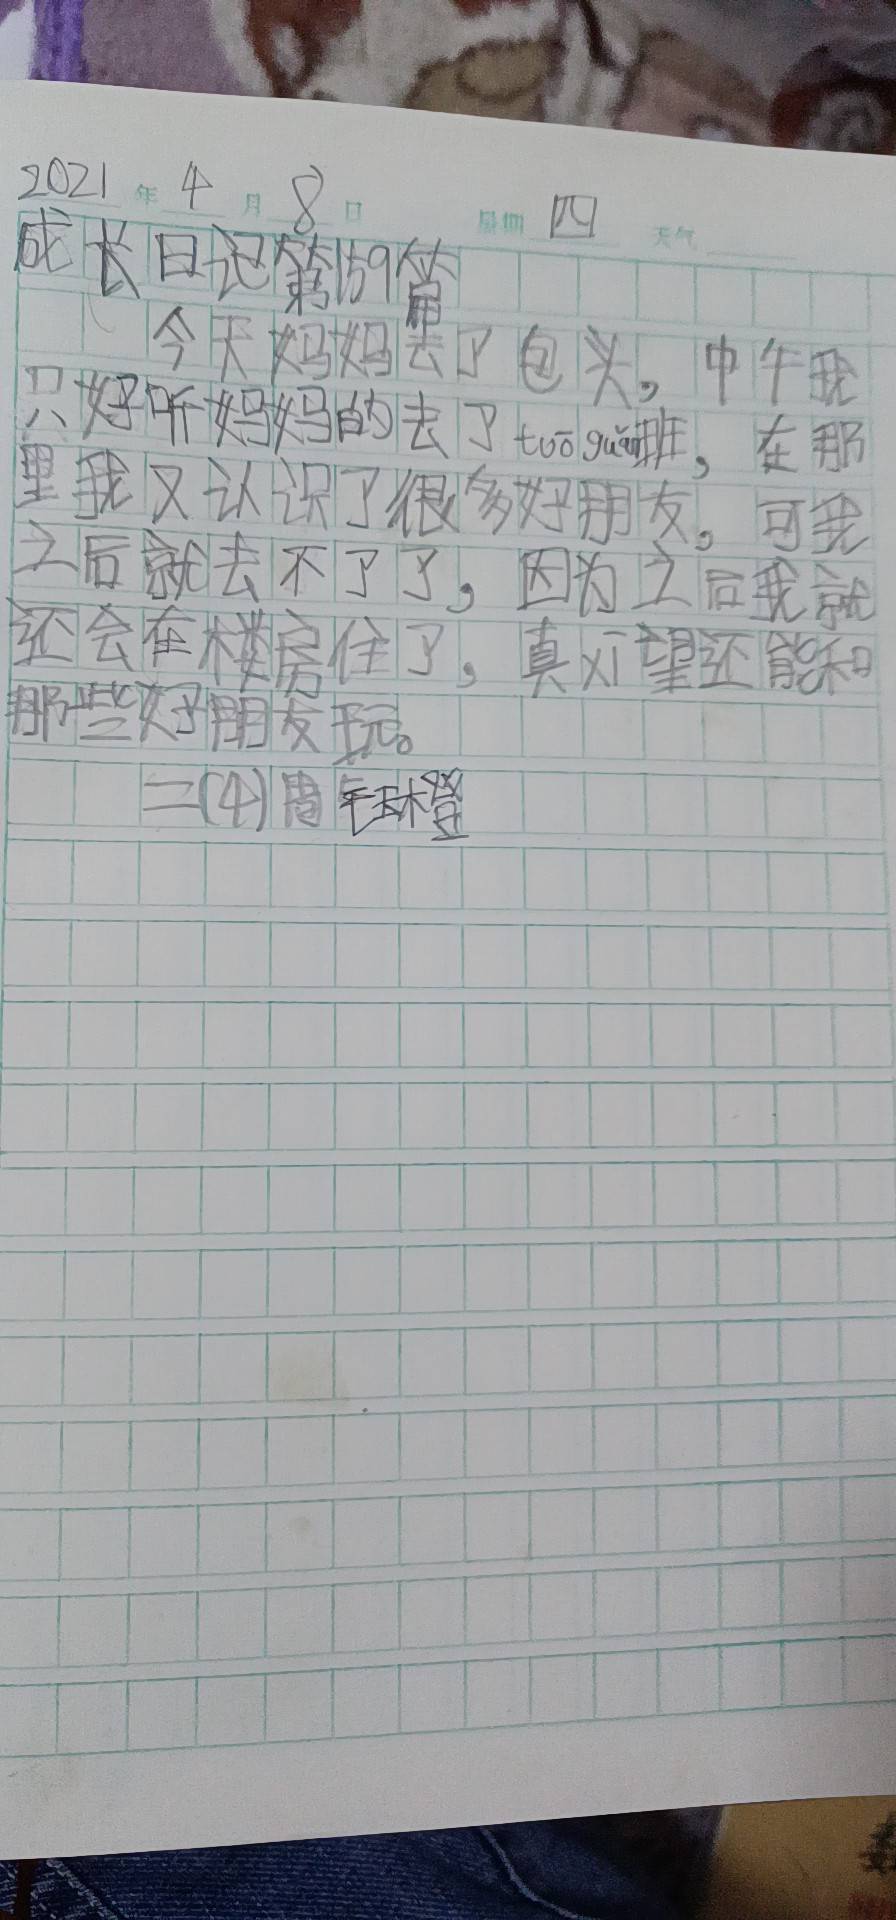 2021年4月8日 星期四 天气
成长日记第159篇
今天妈妈去了包头，中午我
只好听妈妈的去了tuō guǎn班，在那
里我又认识了很多好朋友，可我
之后就去不了了，因为之后我就
还会在楼房住了，真希望还能和
那些好朋友玩。
二(4)周钰